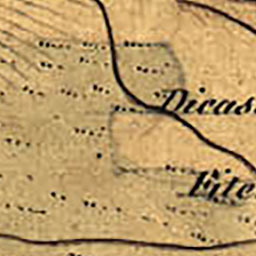 Dicas
Pite